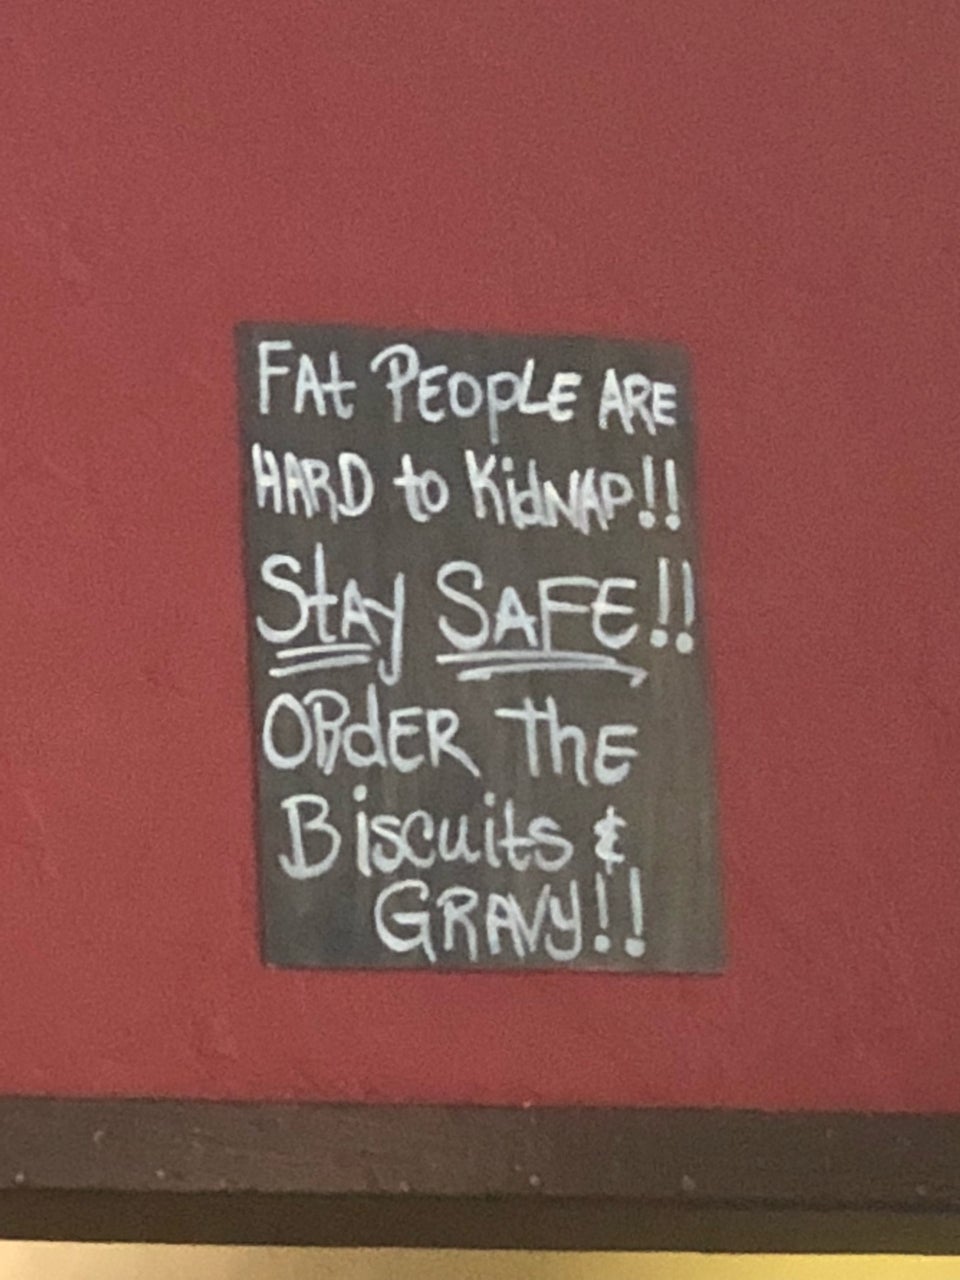 FAt PEOPLE ARE
HARD to KidNAP!!
StAy SAFE!!
ORdER ThE
Biscuits &
GRAVY!!